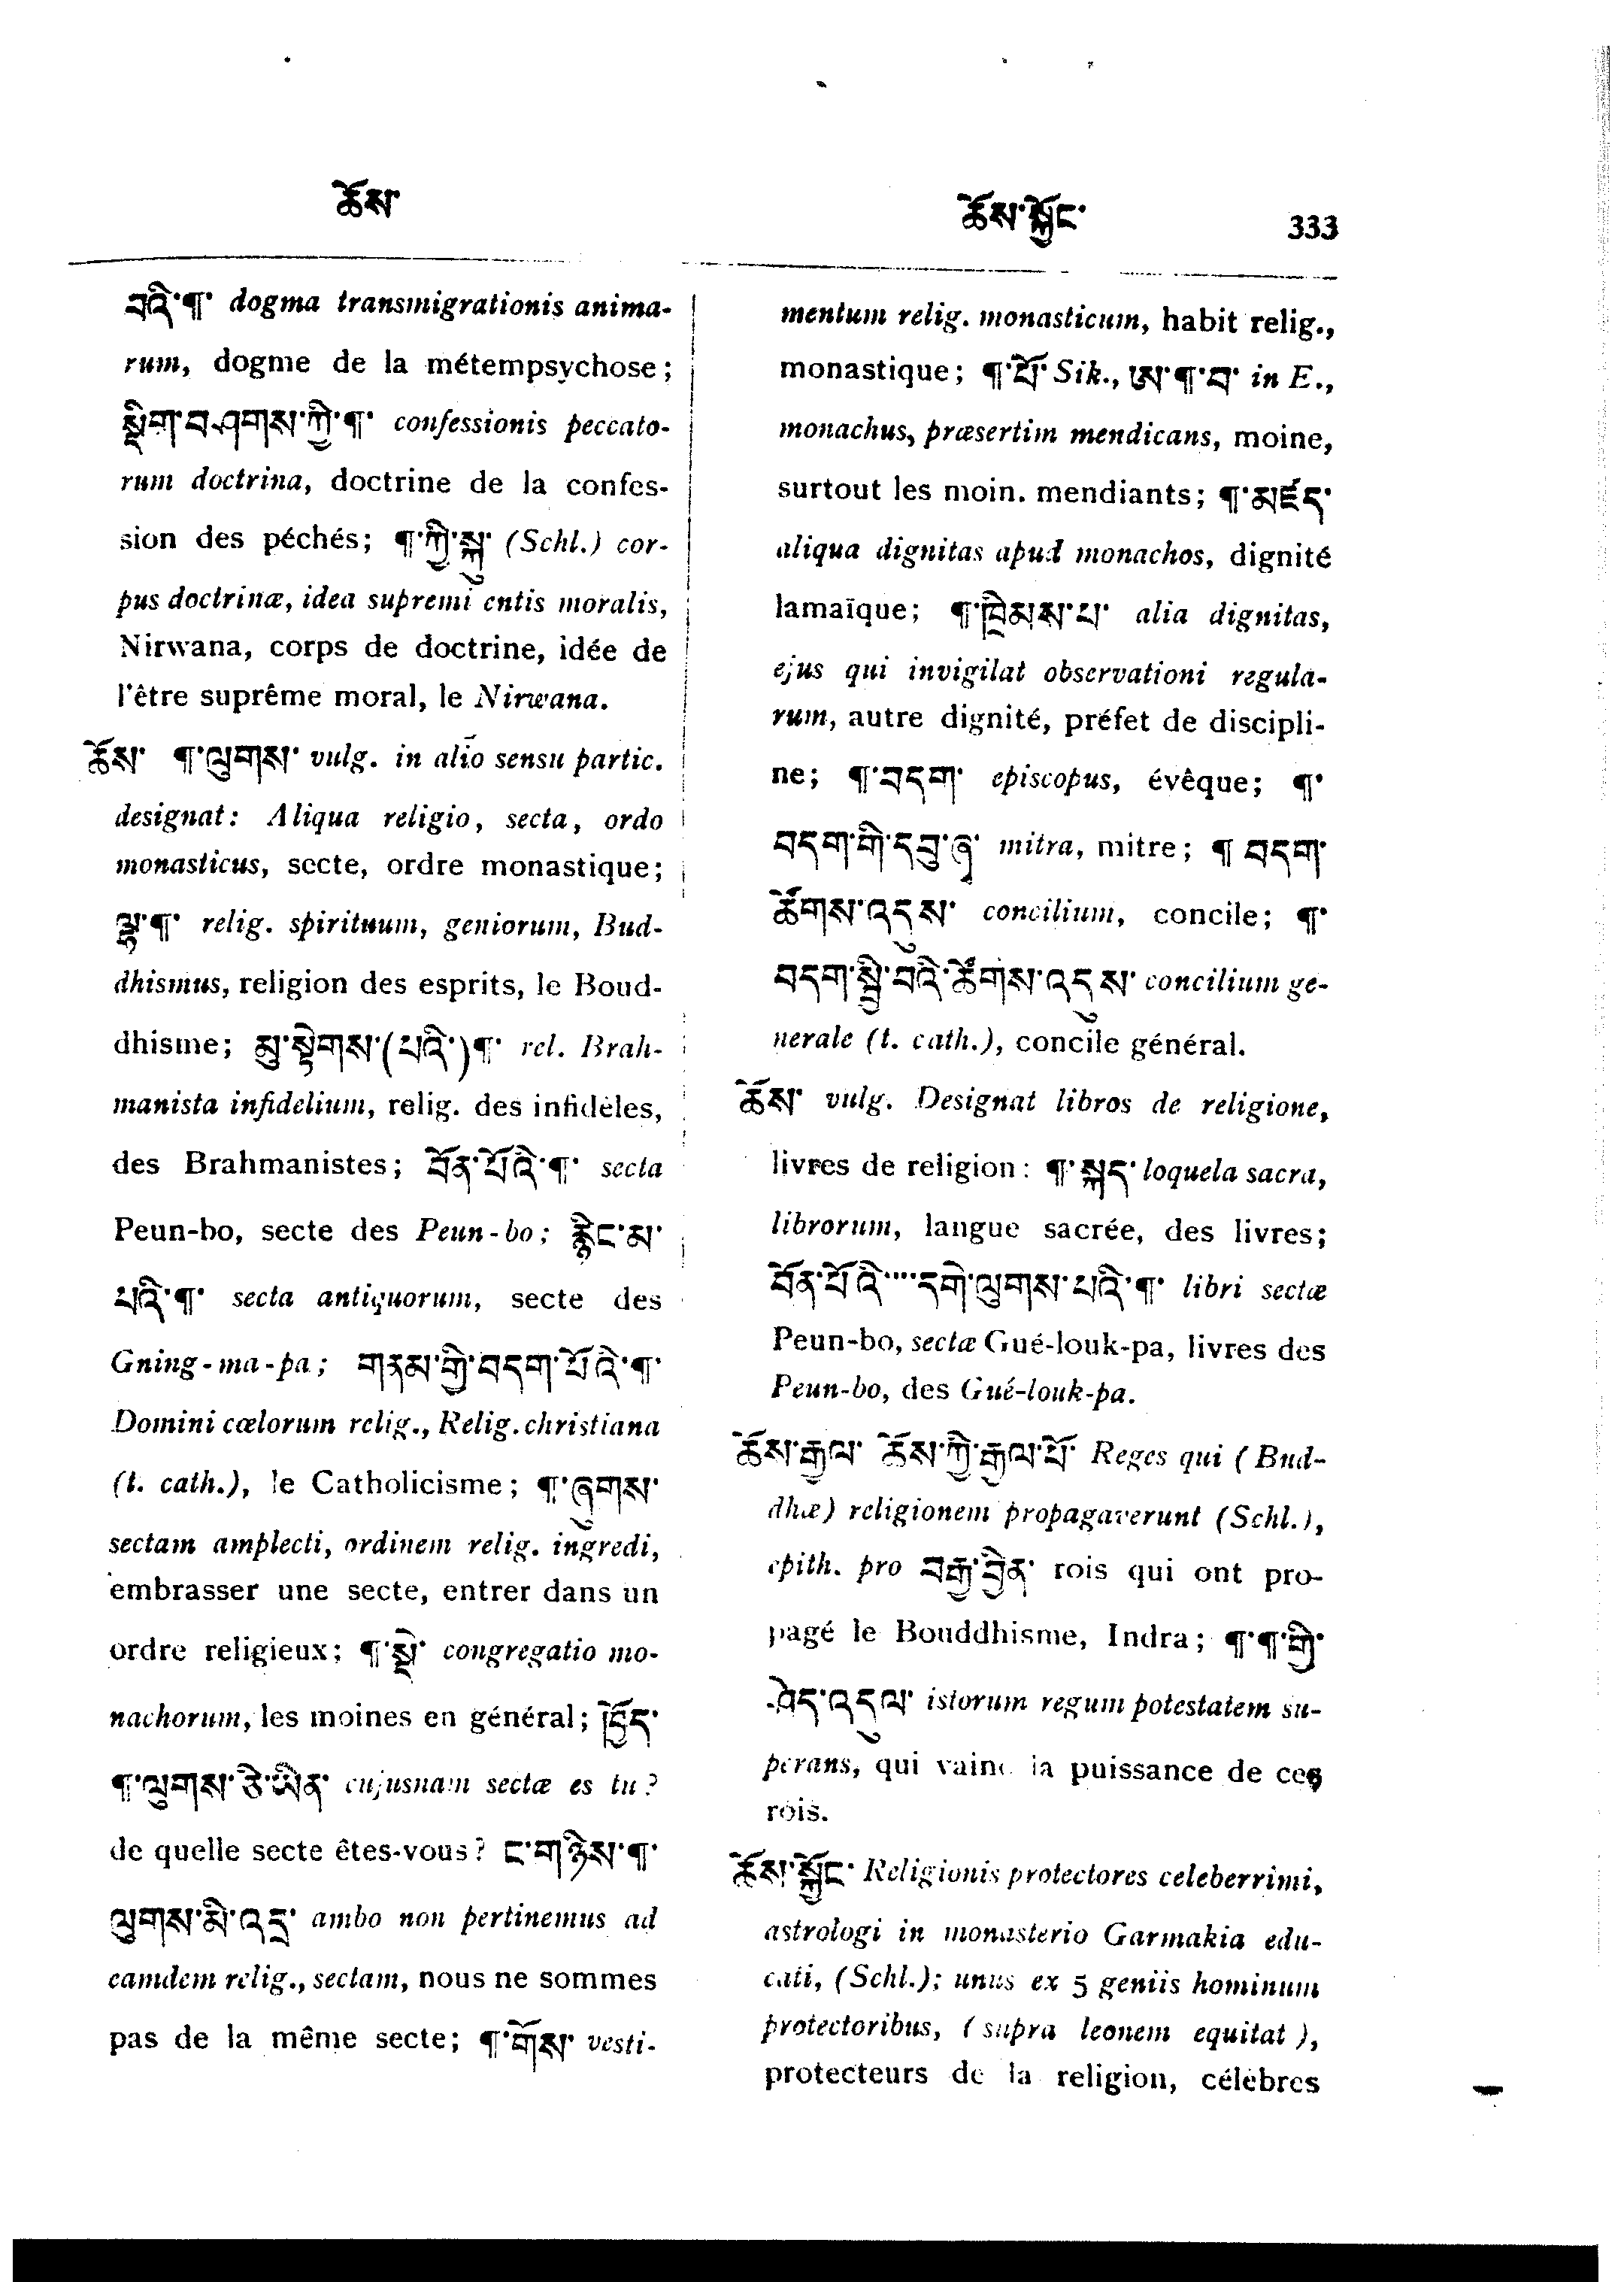 ཆོས་
ཆོས་སྐྱོང་ 333
བའི་¶་ dogma transmigrationis anima-
rum, dogme de la métempsychose;
སྡིག་བཤགས་ཀྱི་¶་ confessionis peccato-
rum doctrina, doctrine de la confes-
sion des péchés; ¶་ཀྱི་སྐུ་ (Schl.) cor-
pus doctrinæ, idea supremi entis moralis,
Nirwana, corps de doctrine, idée de
l'être suprême moral, le Nirwana.
ཆོས་ ¶་ལུགས་ vulg. in alio sensu partic.
designat: Aliqua religio, secta, ordo
monasticus, secte, ordre monastique;
ལྷ་¶་ relig. spirituum, geniorum, Bud-
dhismus, religion des esprits, le Boud-
dhisme; མུ་སྟེགས་(པའི་)¶་ rel. Brah-
manista infidelium, relig. des infidèles,
des Brahmanistes; བོན་པོའི་¶་ secta
Peun-bo, secte des Peun-bo; རྙིང་མ་
པའི་¶་ secta antiquorum, secte des
Gning-ma-pa; གནམ་གྱི་བདག་པོའི་¶་
Domini cœlorum relig., Relig. christiana
(t. cath.), le Catholicisme; ¶་ཞུགས་
sectam amplecti, ordinem relig. ingredi,
embrasser une secte, entrer dans un
ordre religieux; ¶་སྡེ་ congregatio mo-
nachorum, les moines en général; ཁྱོད་
¶་ལུགས་ཅི་ཡིན་ cujusnam sectæ es tu?
de quelle secte êtes-vous? ང་གཉིས་¶་
ལུགས་མི་འདྲ་ ambo non pertinemus ad
eamdem relig., sectam, nous ne sommes
pas de la même secte; ¶་གོས་ vesti-
mentum relig. monasticum, habit relig.,
monastique; ¶་པོ་ Sik., ཨ་¶་བ་ in E.,
monachus, præsertim mendicans, moine,
surtout les moin. mendiants; ¶་མཛོད་
aliqua dignitas apud monachos, dignité
lamaïque; ¶་ཁྲིམས་པ་ alia dignitas,
ejus qui invigilat observationi regula-
rum, autre dignité, préfet de discipli-
ne; ¶་བདག་ episcopus, évêque; ¶་
བདག་གི་དབུ་ཞྭ་ mitra, mitre; ¶ བདག་
ཚོགས་འདུས་ concilium, concile; ¶་
བདག་སྤྱི་བའི་ཚོགས་འདུས་ concilium ge-
nerale (t. cath.), concile général.
ཆོས་ vulg. Designat libros de religione,
livres de religion: ¶་སྐད་ loquela sacra,
librorum, langue sacrée, des livres;
བོན་པོའི་....དགེ་ལུགས་པའི་¶་ libri sectæ
Peun-bo, sectæ Gué-louk-pa, livres des
Peun-bo, des Gué-louk-pa.
ཆོས་རྒྱལ་ ཆོས་ཀྱི་རྒྱལ་པོ་ Reges qui (Bud-
dhæ) religionem propagaverunt (Schl.),
epith. pro བརྒྱ་བྱིན་ rois qui ont pro-
pagé le Bouddhisme, Indra; ¶་¶་གྱི་
ཤེད་འདུལ་ istorum regum potestatem su-
perans, qui vainc la puissance de ces
rois.
ཆོས་སྐྱོང་ Religionis protectores celeberrimi,
astrologi in monasterio Garmakia edu-
cati, (Schl.); unus ex 5 geniis hominum
protectoribus, (supra leonem equitat),
protecteurs de la religion, célèbres